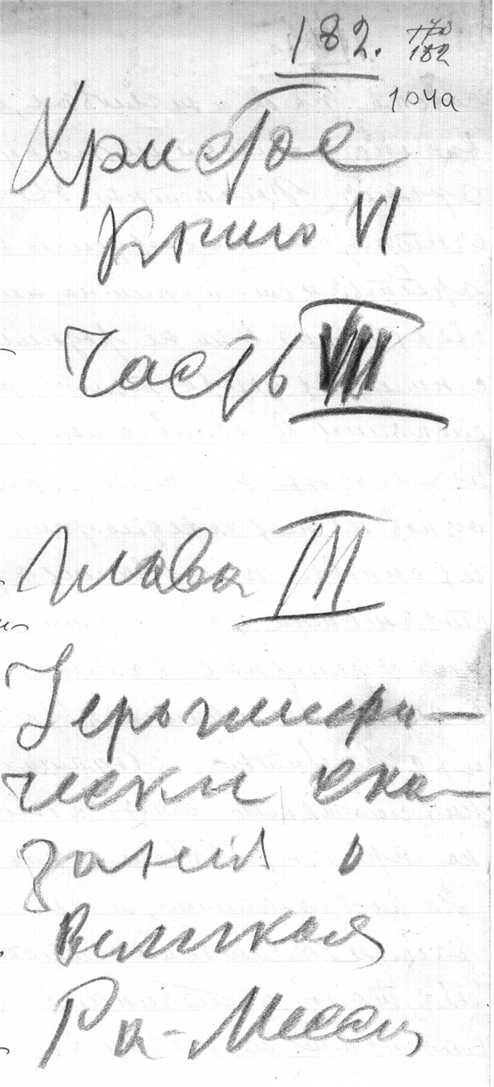 182.
182
104а
Христос
Книга VI
Часть VIII
Глава III
Иероглифи-
чески ска-
зания о
великая